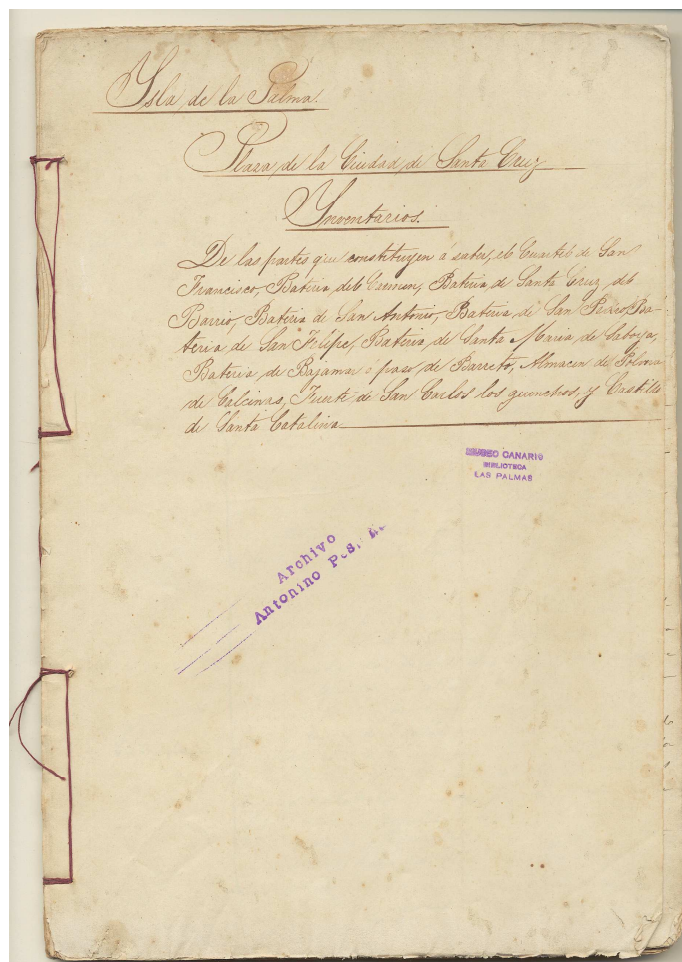 Ysla de la Palma.
Plaza de la Ciudad de Santa Cruz
Inventarios.
De las partes que constituyen á saber, el Cuartel de San
Francisco, Bateria del Carmen, Bateria de Santa Cruz del
Barrio, Bateria de San Antonio, Bateria de San Pedro, Ba-
teria de San Felipe, Bateria de Santa Maria de Saboya,
Bateria de Bajamar ó paso de Barreto, Almacen de Polvora
de Calcinas, Fuerte de San Carlos los guinchos, y Castillo
de Santa Catalina
MUSEO CANARIO
BIBLIOTECA
LAS PALMAS
Archivo
Antonino